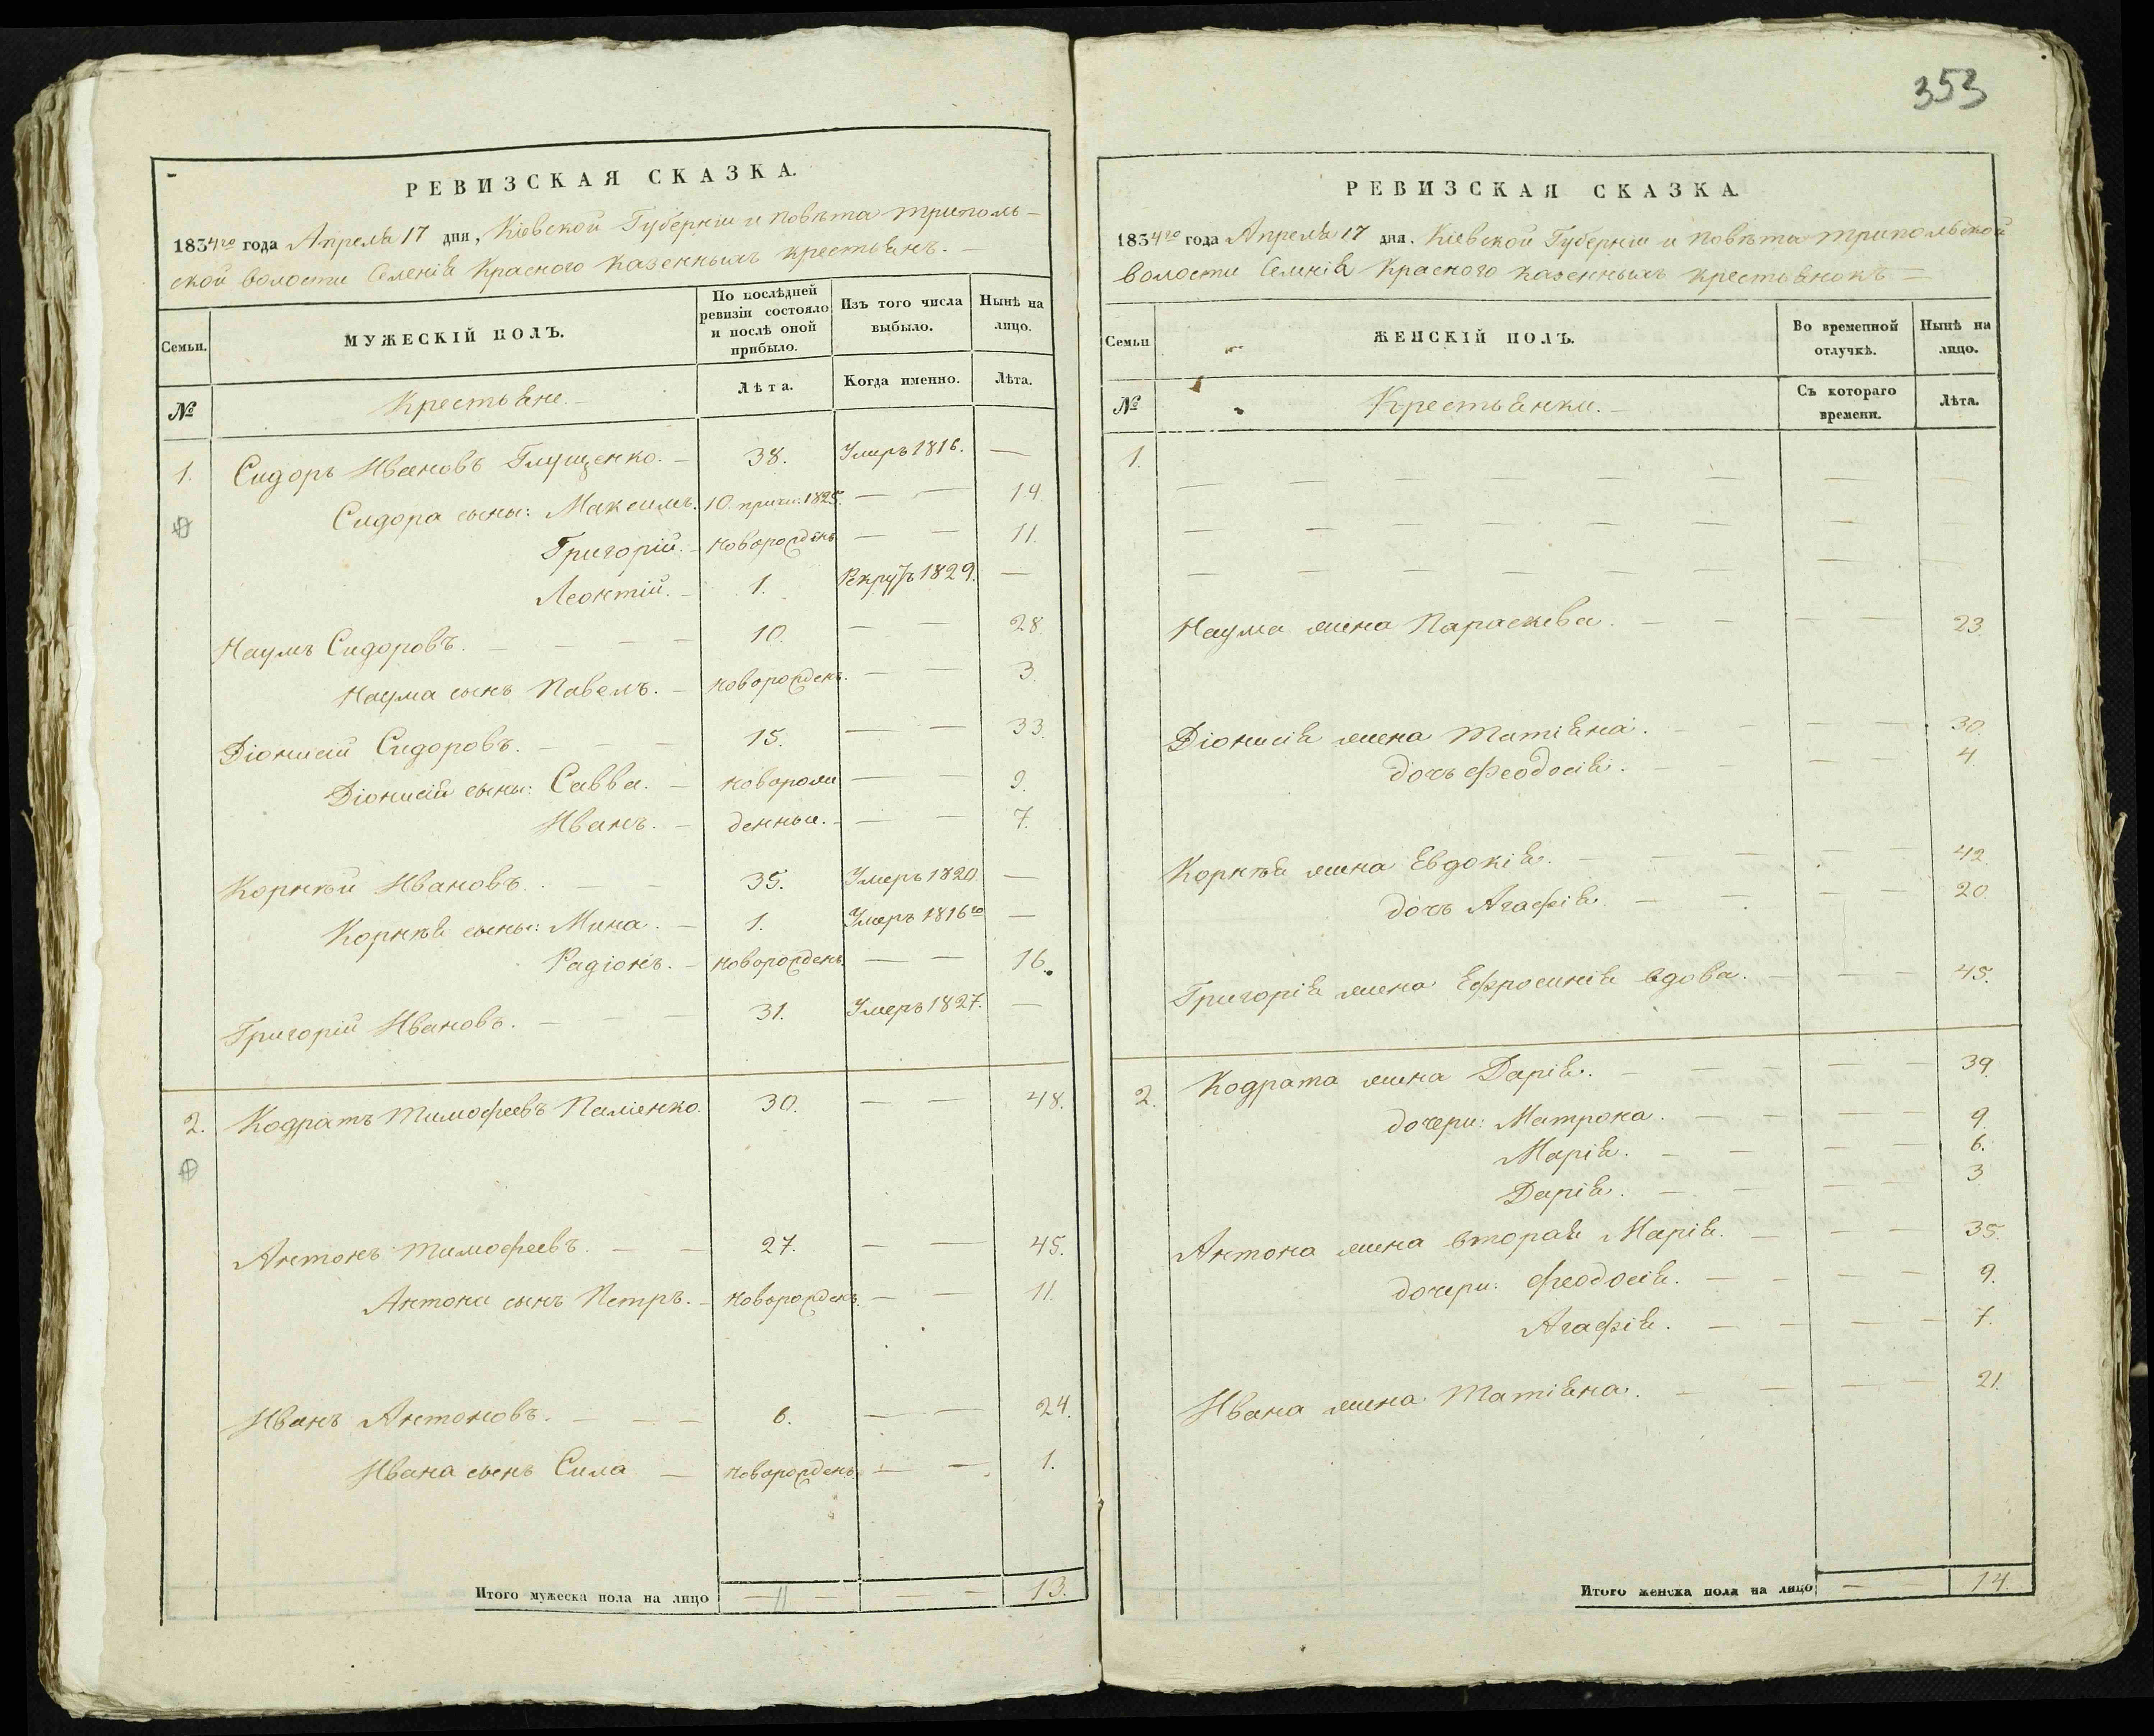 353
РЕВИЗСКАЯ СКАЗКА.
1834го года Апреля 17 дня, Кіевской Губерніи и повѣта триполь-
ской волости Селенія Красного казенныхъ крестьянъ.
Семьи.
МУЖЕСКІЙ ПОЛЪ.
По послѣдней ревизіи состояло и послѣ оной прибыло.
Изъ того числа выбыло.
Нынѣ на лицо.
№
Крестьяне.
Лѣта.
Когда именно.
Лѣта.
1. Сидоръ Ивановъ Глущенко. 38. Умеръ 1816. —
Сидора сыны: Максимъ. 10. причи: 1825. — — 19.
Григорій. новорожденъ — — 11.
Леонтій. 1. Рекрутъ 1829. —
Наумъ Сидоровъ. — — — 10. — — 28.
Наума сынъ Павелъ. новорожденъ. — — 3.
Діонисій Сидоровъ. — — — 15. — — 33.
Діонисій сыны: Савва. новорож — — 9.
Иванъ. денныи. — — 7.
Корнѣй Ивановъ. — — 35. Умеръ 1820. —
Корнѣя сыны: Мина. 1. Умеръ 1816го —
Радіонъ. новорожденъ. — — 16.
Григорій Ивановъ. — — — 31. Умеръ 1827. —
2. Кодратъ Тимофеевъ Паліенко. 30. — — 48.
Антонъ Тимофеевъ. — — 27. — — 45.
Антона сынъ Петръ. новорожденъ. — — 11.
Иванъ Антоновъ. — — — 6. — — 24.
Ивана сынъ Сила — новорожденъ. — — 1.
Итого мужеска пола на лицо — 11 — — — 13.
РЕВИЗСКАЯ СКАЗКА
1834го года Апреля 17 дня. Кіевской Губерніи и повѣта трипольской
волости Селнія Красного казенныхъ крестьянокъ —
Семьи
ЖЕНСКІЙ ПОЛЪ.
Во временной отлучкѣ.
Нынѣ на лицо.
№
Крестьянки.
Съ котораго времени.
Лѣта.
1.
Наума жена Параскева. — — 23.
Діонисія жена Татіяна. — — 30.
дочь Феодосія. — — 4.
Корнѣя жена Евдокія. — — 42.
дочь Агафія. — — 20.
Григорія жена Ефросинія вдова. — — 45.
2. Кодрата жена Дарія. — — 39.
дочери: Матрона. — — 9.
Марія. — — 6.
Дарія. — — 3
Антона жена вторая Марія. — — 35.
дочери: Феодосія. — — 9.
Агафія. — — 7.
Ивана жена Татіяна. — — 21.
Итого женска пола на лицо — — 14